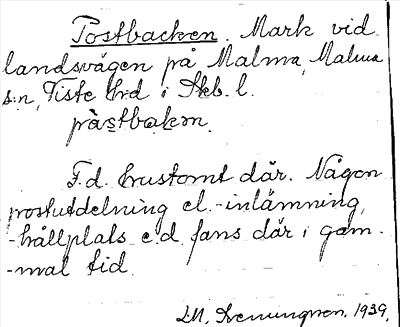 Postbacken. Mark vid
landsvägen på Malma, Malma
s:n, Viste hrd i Skb. l.
påstbakɘn.
F.d. krustomt där. Någon
postutdelning el. -inlämning,
-hållplats e.d. fans där i gam-
-mal tid.
1939.